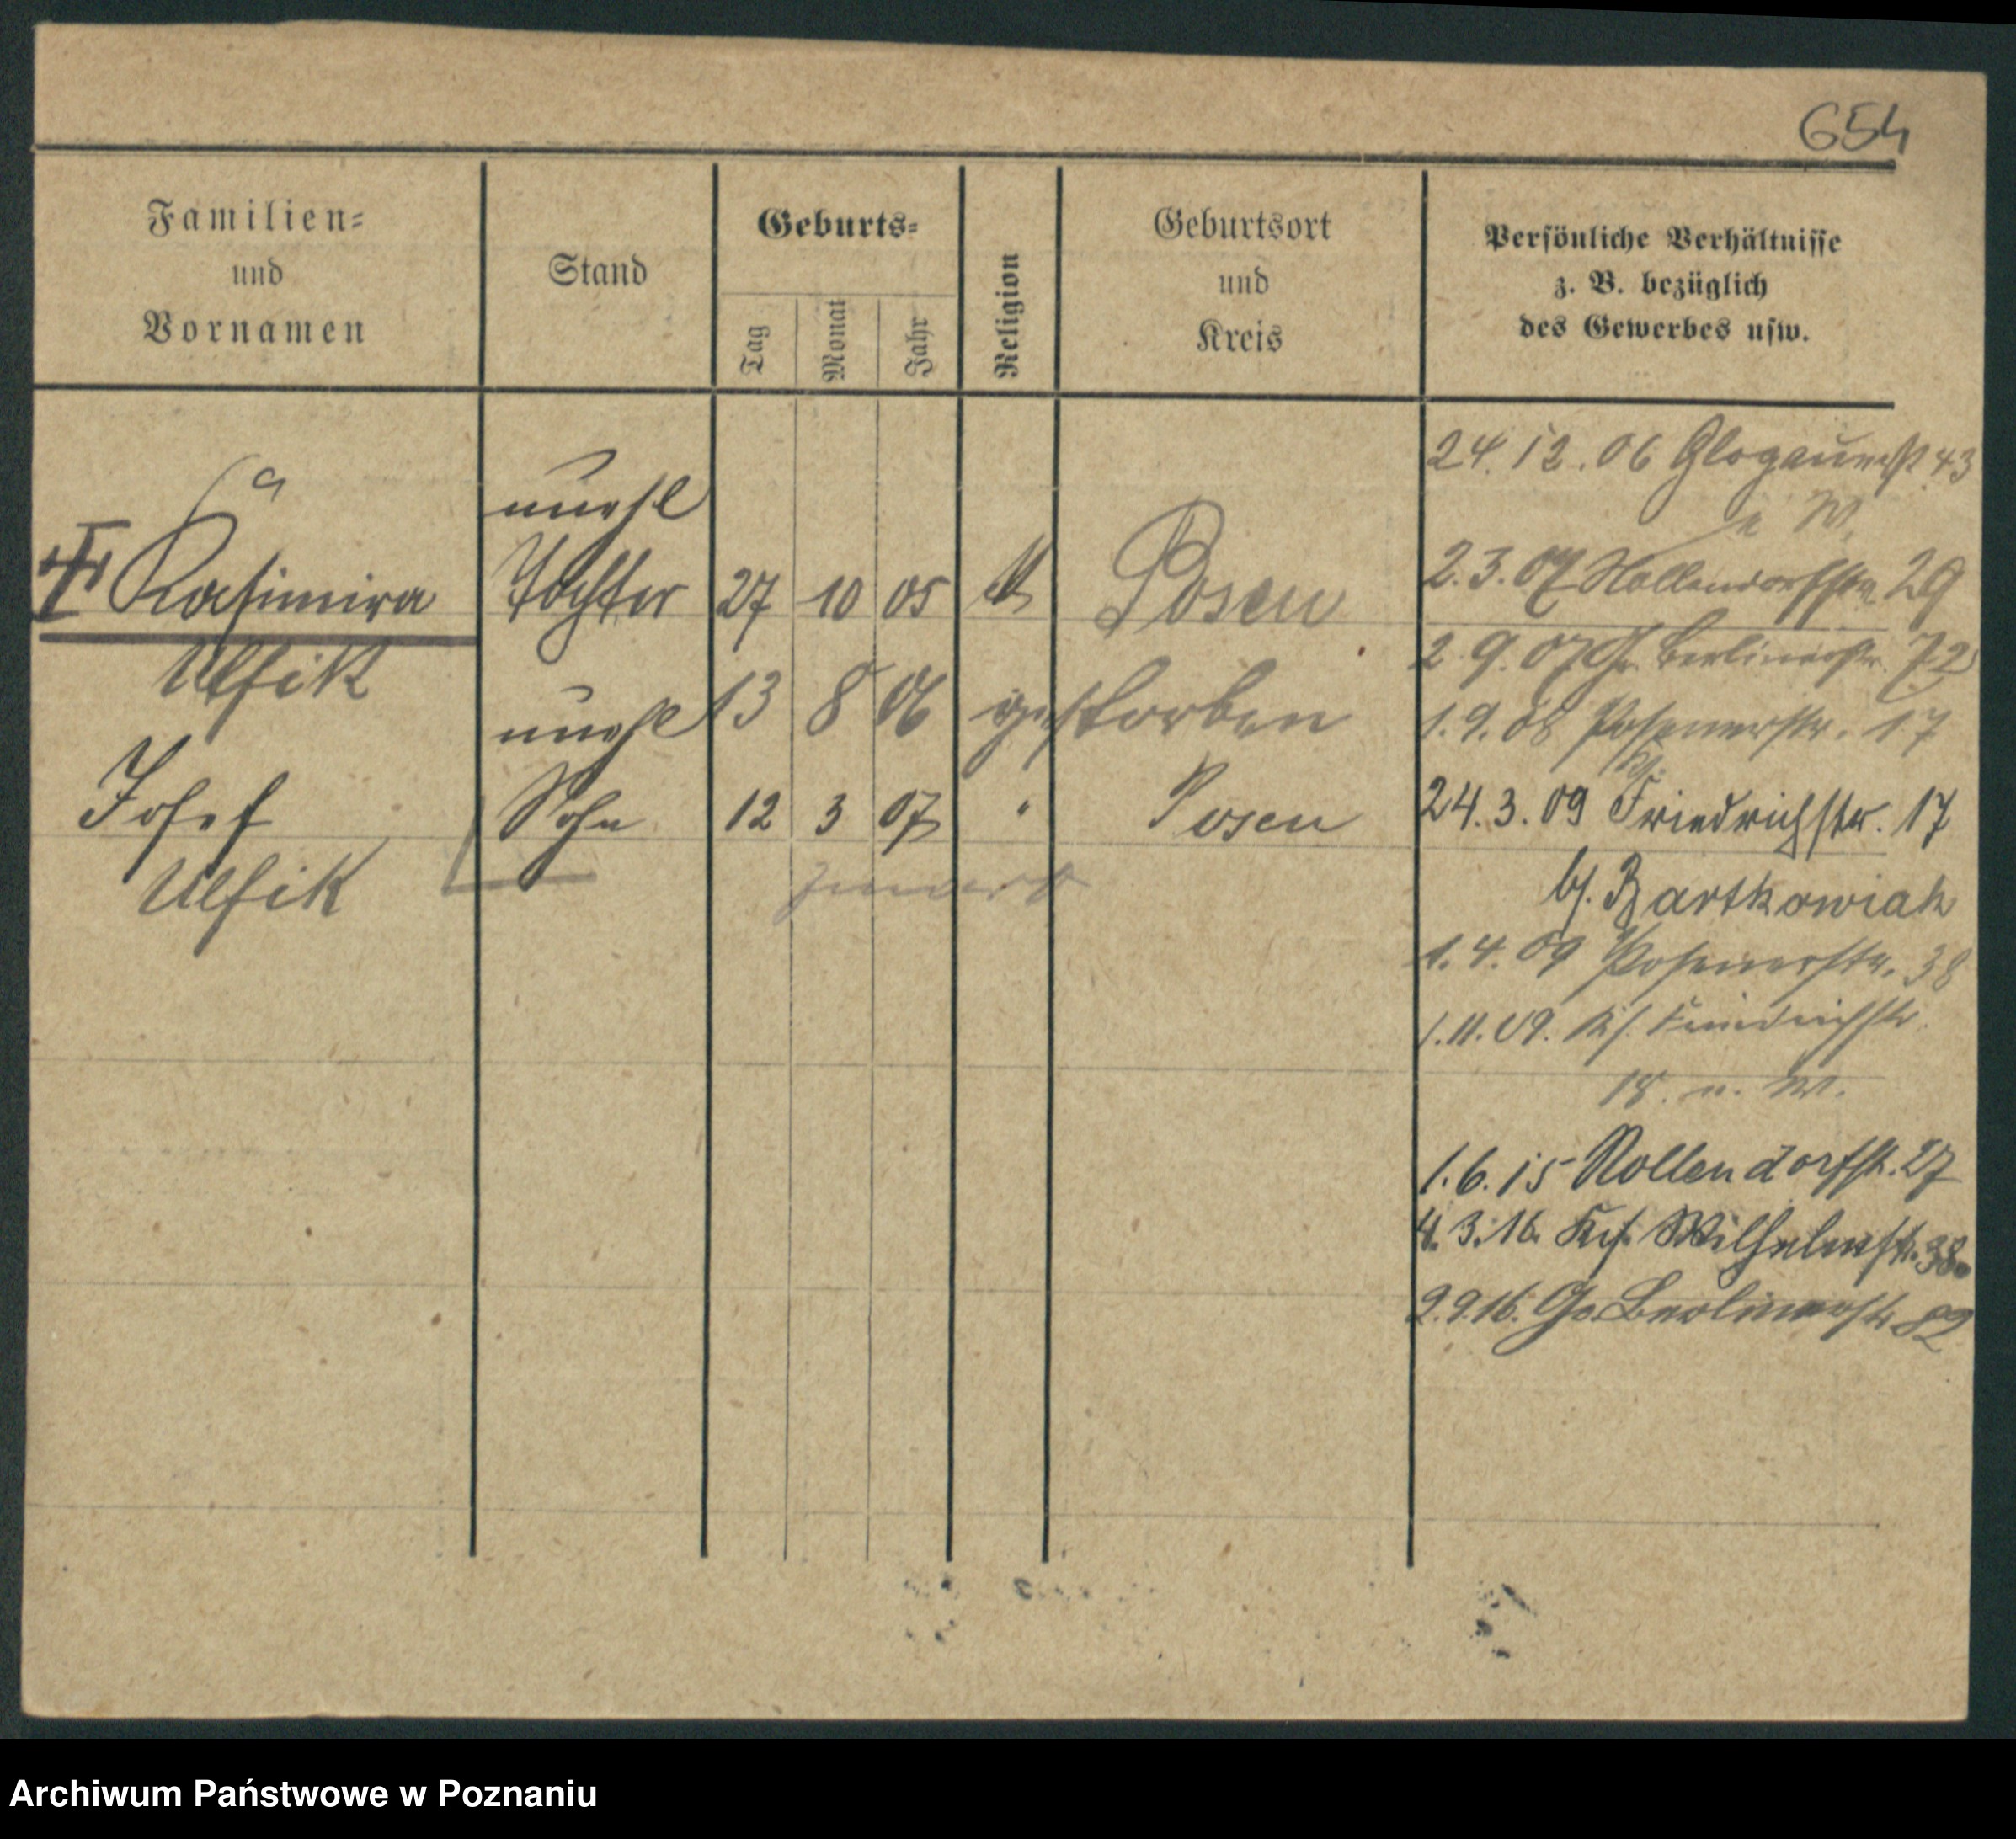 654
Familien=
und
Vornamen
Stand
Geburts=
Tag
Monat
Jahr
Religion
Geburtsort
und
Kreis
Persönliche Verhältnisse
z. B. bezüglich
des Gewerbes usw.
unehl
Kasimira Tochter 27 10 05 k Posen
Ulfik
13 8 06 gestorben
unehl
Josef Sohn 12 3 07 " Posen
Ulfik
24.12.06 Glogauerstr 43
W.
2.3.07 Nollendorfstr. 29
2.9.07 Gr. Berlinerstr. 72
1.9.08 Posenerstr. 17
24.3.09 Friedrichstr. 17
b/. Bartkowiak
1.4.09 Posenerstr. 38
1.11.09. K/. Friedrichstr.
18. u. W.
1.6.15 Nollendorfstr. 27
4.3.16. Ks. Wilhelmstr. 38
2.9.16. Gr. Berlinerstr 82
Archiwum Państwowe w Poznaniu